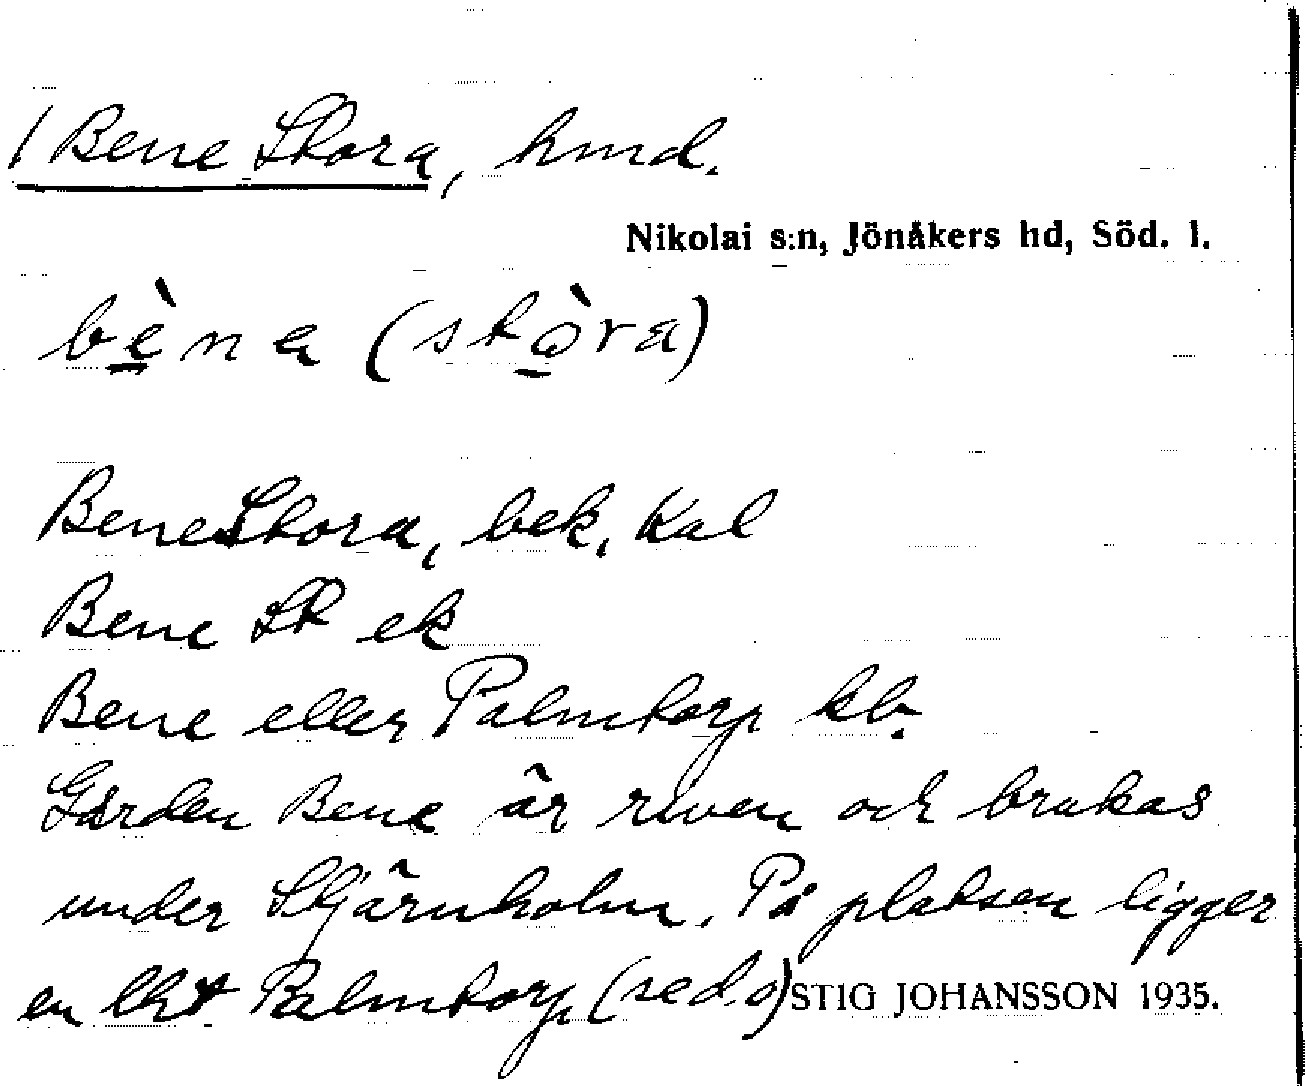 / Bene Stora, hmd.
Nikolai s:n, Jönåkers hd, Söd. l.
bèna (stòra)
Bene Stora, bek, Kal
Bene St ek
Bene eller Palmtorp kb.
Gården Bene är riven och brukas
under Stjärnholm. På platsen ligger
en lht Palmtorp (se d.o) STIG JOHANSSON 1935.